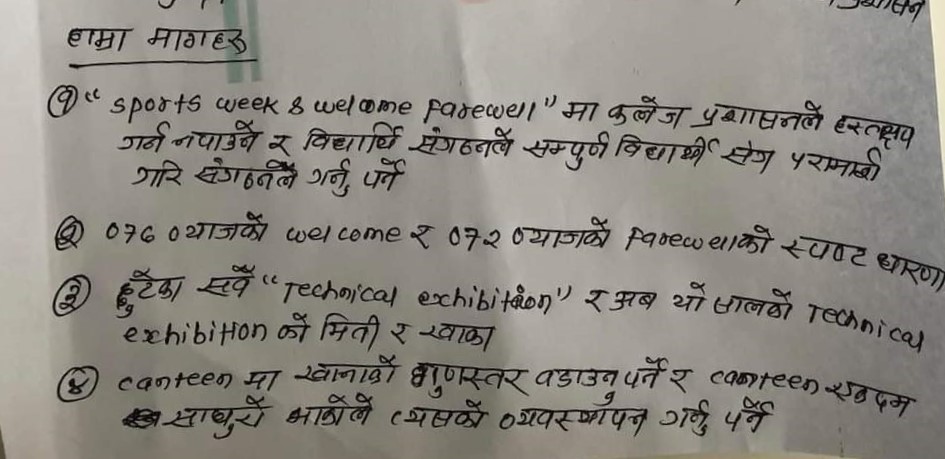 हाम्रा मागहरु
१ "sports week & welcome farewell" मा कलेज प्रशासनले हस्तक्षेप
गर्न नपाउने र विद्यार्थि संगठनले सम्पुर्ण विद्यार्थी संग परामर्श
गरि संगठनले गर्नु पर्ने
२ ०७६ व्याजको welcome र ०७२ व्याजको farewellको स्पष्ट धारणा
३ छुटेका सवै "Technical exhibition" र अब यो सालको Technical
exhibition को मिती र खाका
४ canteen मा खानाको गुणस्तर वडाउनु पर्ने र canteen एकदम
साघुरो भाकोले त्यसको व्यवस्थापन गर्नु पर्ने